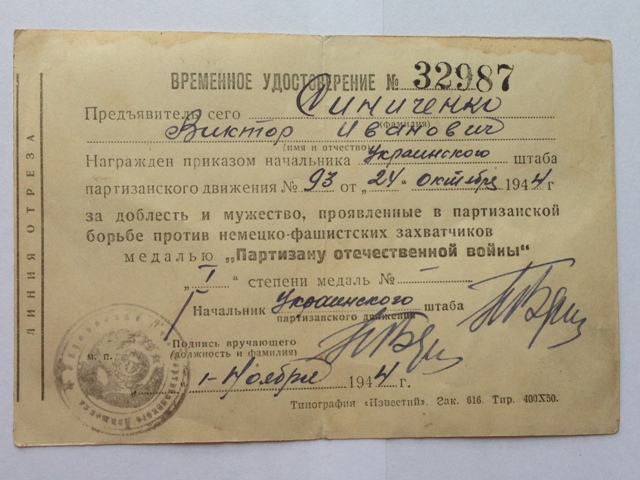 ВРЕМЕННОЕ УДОСТОВЕРЕНИЕ № 32987
Предъявитель сего Синиченко
(фамилия)
Виктор Иванович
(имя и отчество)
Награжден приказом начальника Украинского штаба
партизанского движения № 93 от „24" октября 1944 г
за доблесть и мужество, проявленные в партизанской
борьбе против немецко-фашистских захватчиков
медалью „Партизану отечественной войны"
„I" степени медаль № —
Начальник Украинского штаба
партизанского движения
м. п.
Подпись вручающего
(должность и фамилия)
1 - Ноября 1944 г.
Типография «Известий». Зак. 616. Тир. 400X50.
ЛИНИЯ ОТРЕЗА